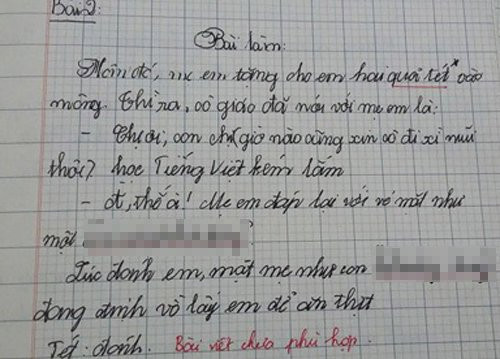 Bài 2:
Bài làm:
Hôm đó, mẹ em tặng cho em hai quả tét* vào
mông. Thì ra, cô giáo đã nói với mẹ em là:
- Chị ơi, con chị giờ nào cũng xin cô đi xì mũi
thôi? học Tiếng Việt kém lắm
- Ồ, thế à! Mẹ em đáp lại với vẻ mặt như
một
Lúc đánh em, mặt mẹ như con
đang định vồ lấy em để ăn thịt
Tét: đánh. Bài viết chưa phù hợp.